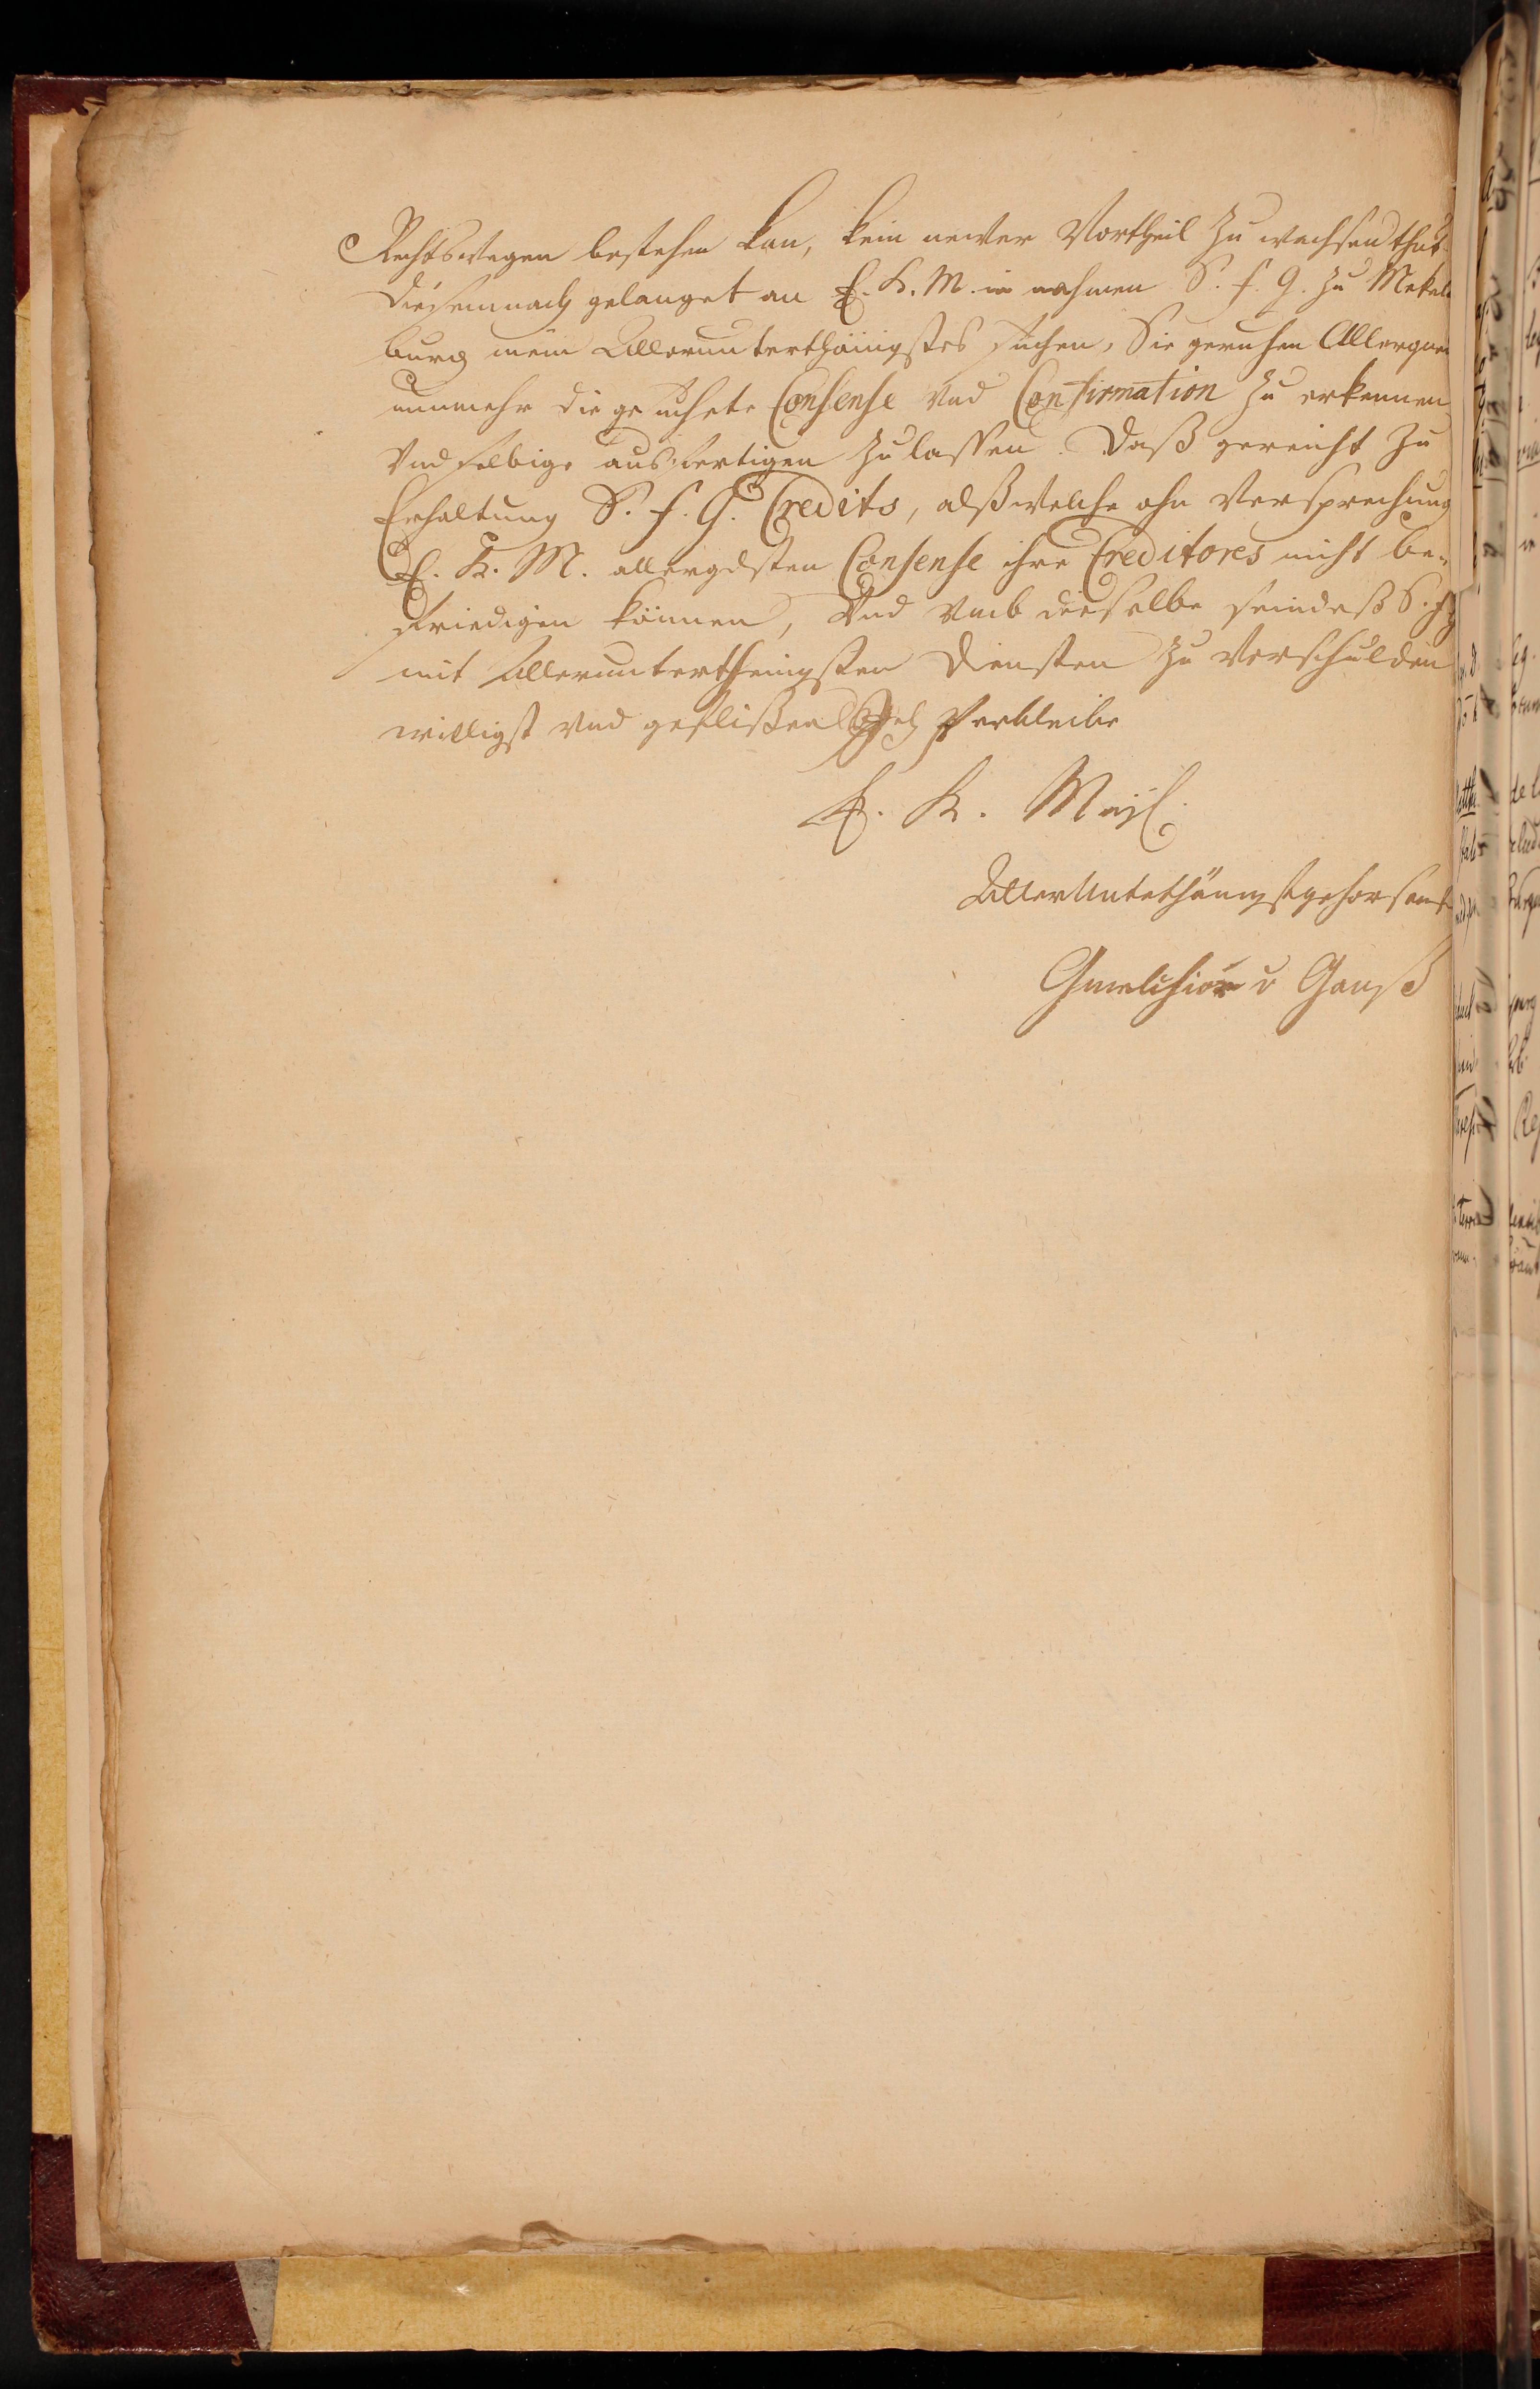 Rechtswegen bestehen kan, kein newer Vortheil zu wachsen thut
Diesemnach gelanget an E. K. M. in nahmen S. f. G. zu Mekel
burg mein Allerunterthänigstes suchen, Sie geruhen Allergne
nunmehr die gesuchete Consense vnd Confirmation zu erkennen
Vnd selbige ausfertigen zulassen. Daß gereicht zu
Erhaltung S. f. G. Credits, alß welche ohn Versprechung
E. K. M. allergdsten Consense ihre Creditores nicht be-
friedigen können, Vnd vmb dieselbe seindeß S. f. g
mit Allerunterthenigsten Diensten zu Verschulden
willigst vnd geflißen Ich Verbleibe
E. K. Mayt.
AllerUntethänigstgehorsamst
Gmelchior v Gauß